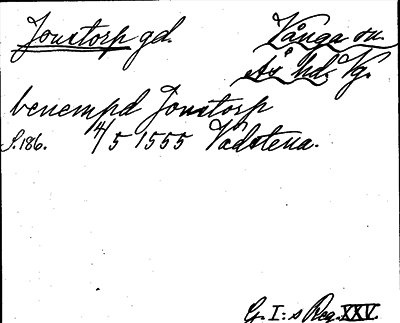 Jonstorp gd. Vånga sn.
Ås hd. Vg.
benempd Jonstorp
S. 186. 14/5 1555 Vadstena.
G. I:s Reg. XXV.